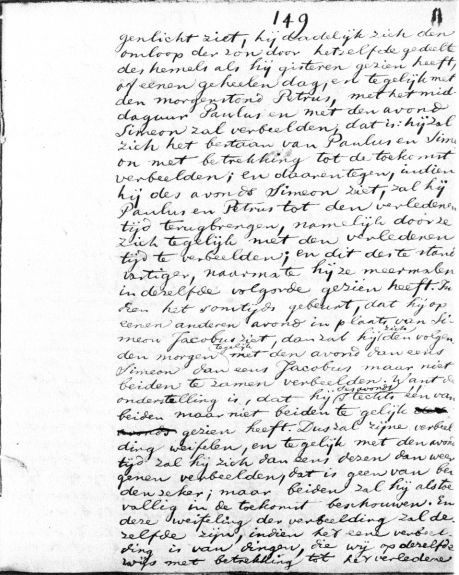 149
genlicht ziet, hij dadelijk zich den
omloop der zon door hetzelfde gedelte
des hemels als hij gisteren gezien heeft,
of eenen geheelen dag, en tegelijk met
den morgenstond Petrus, met het mid-
daguur Paulus en met den avond
Simeon zal verbeelden, dat is: hij zal
zich het bestaan van Paulus en Sime
on met betrekking tot de toekomst
verbeelden; en daarentegen, indien
hij des avonds Simeon ziet, zal hij
Paulus en Petrus tot den verledenen
tijd terugbrengen, namelijk door ze
zich tegelijk met den verledenen
tijd te verbeelden; en dit des te stand
vastiger, naarmate hij ze meermalen
in dezelfde volgorde gezien heeft. In
dien het somtijds gebeurt, dat hij op
eenen anderen avond in plaats van Si-
meon Jacobus ziet, dan zal hij zich den volgen
den morgen tegelijk met den avond dan eens
Simeon dan eens Jacobus maar niet
beiden te zamen verbeelden. Want de
onderstelling is, dat hij des avonds slechts een van
beiden maar niet beiden te gelijk
gezien heeft. Dus zal zijne verbeel
ding weifelen, en tegelijk met den avond
tijd zal hij zich dan eens dezen dan weer
genen verbeelden, dat is geen van bei
den zeker; maar beiden zal hij als toe
vallig in de toekomst beschouwen. En
deze weifeling der verbeelding zal de
zelfde zijn, indien het eene verbeel
ding is van dingen, die wij op dezelfde
wijs met betrekking tot het verledene